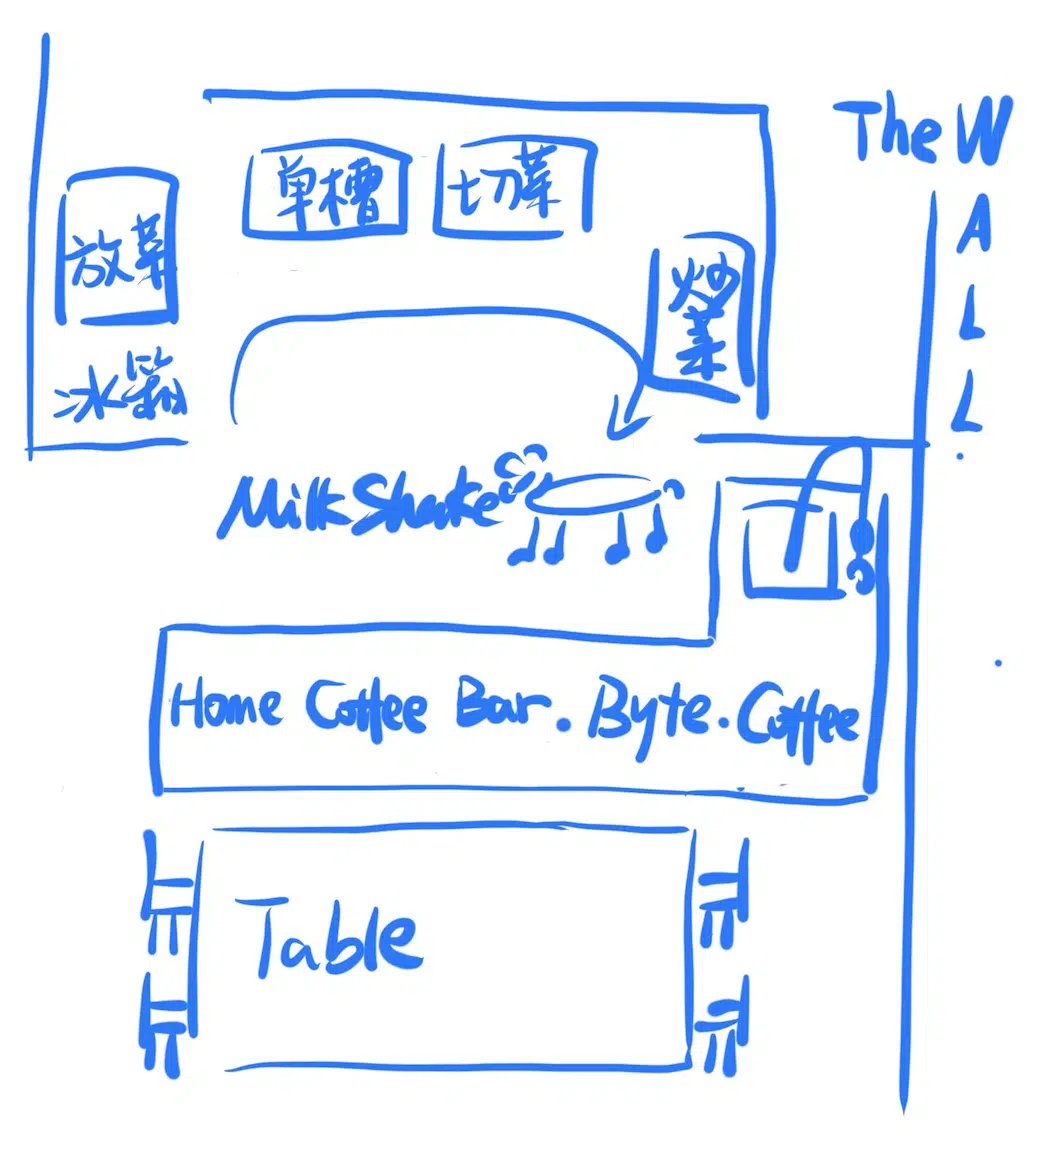 The W
A
L
L
单槽
切菜
放菜
炒
菜
冰箱
MilkShake
Home Coffee Bar. Byte. Coffee
Table